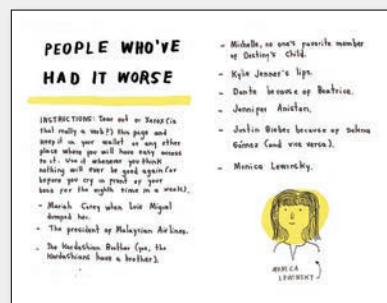 PEOPLE WHO'VE
HAD IT WORSE
INSTRUCTIONS: Tear out or Xerox (is
that really a verb?) this page and
keep it in your wallet or any other
place where you will have easy access
to it. Use it whenever you think
nothing will ever be good again (or
before you cry in front of your
boss for the eighth time in a week).
- Mariah Carey when Luis Miguel
dumped her.
- The president of Malaysian Airlines.
- The Kardashian Brother (yes, the
Kardashians have a brother).
- Michelle, no one's favorite member
of Destiny's Child.
- Kylie Jenner's lips.
- Dante because of Beatrice.
- Jennifer Aniston.
- Justin Bieber because of Selena
Gómez (and vice versa).
- Monica Lewinsky.
MONICA
LEWINSKY